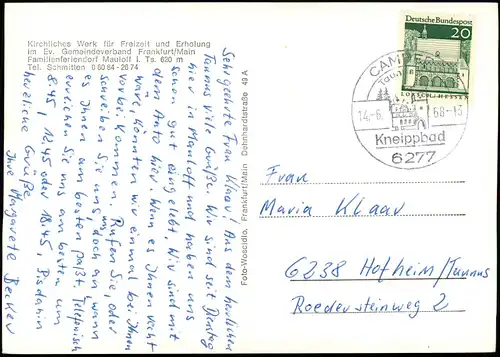 Kirchliches Werk für Freizeit und Erholung
im Ev. Gemeindeverband Frankfurt/Main
Familienferiendorf Mauloff i. Ts. 620 m
Tel. Schmitten 0 60 84 - 26 74
Sehr geehrte Frau Klaar! Aus dem herrlichen
Taunus viele Grüße. Wir sind seit Dienstag
hier in Mauloff und haben uns
schon gut eingelebt. Wir sind mit
dem Auto hier. Wenn es Ihnen recht
wäre, könnten wir einmal bei Ihnen
vorbei kommen. Rufen Sie, oder
schreiben Sie uns doch an, wann
es Ihnen am besten paßt. Telefonisch
erreichen Sie uns am besten um
8.45, 12.45 oder 18.45. Bis dahin
herzliche Grüße
Ihre Margarete Becker
Foto-Woscidlo, Frankfurt/Main Dehnhardtstraße 49 A
Deutsche Bundespost
20
LORSCH/HESSEN
CAMB
Taun
14.-6.
68.-15
Kneippbad
6277
Frau
Maria Klaar
6238 Hofheim/Taunus
Roedersteinweg 2